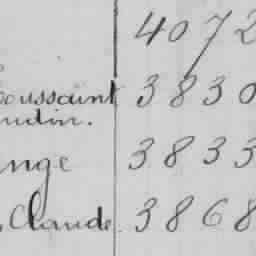 4072
oussaint 3830
udin.
nge 3833
Claude 3868